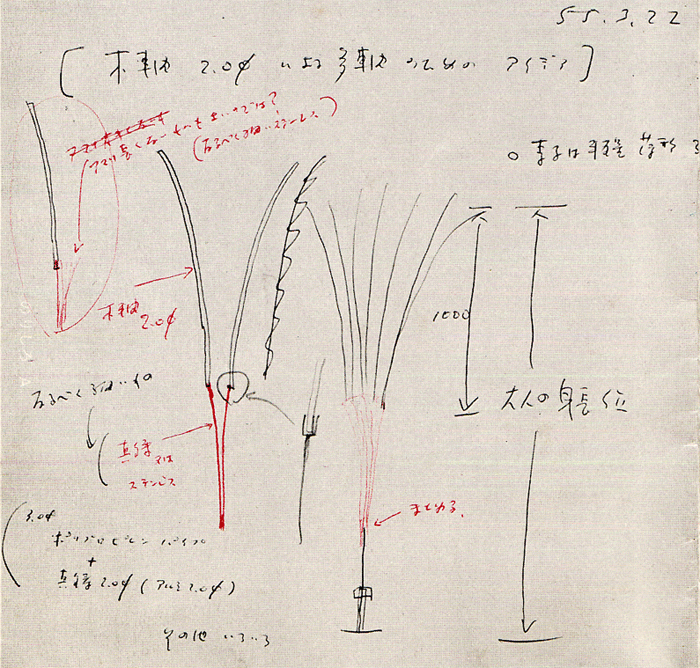 55.3.22
[木軸 2.0φ による多軸のための アイデア]
アマリ長くない方がよいのでは?
(なるべく細いステンレス)
○素子は半硬
木軸
2.0φ
1000
なるべく細いもの
大人の身長位
真鍮又は
ステンレス
まとめる.
3.0φ
ポリプロピレン パイプ
+
真鍮2.0φ(アルミ2.0φ)
その他 いろいろ